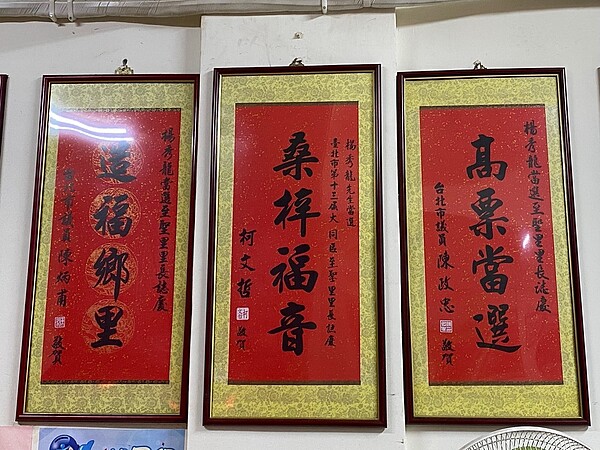 楊秀龍當選至聖里里長誌慶
高票當選
台北市議員 陳政忠
敬賀
楊秀龍先生當選
臺北市第十三屆大同區至聖里里長誌慶
桑梓福音
柯文哲
敬賀
楊秀龍當選至聖里里長誌慶
造福鄉里
台北市議員 陳炳甫
敬賀